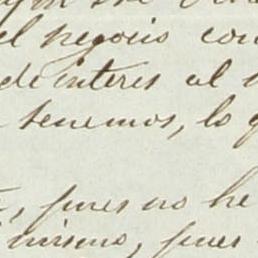 el negocio con
de interes al
tenemos, lo
pues no he
mismo, pues